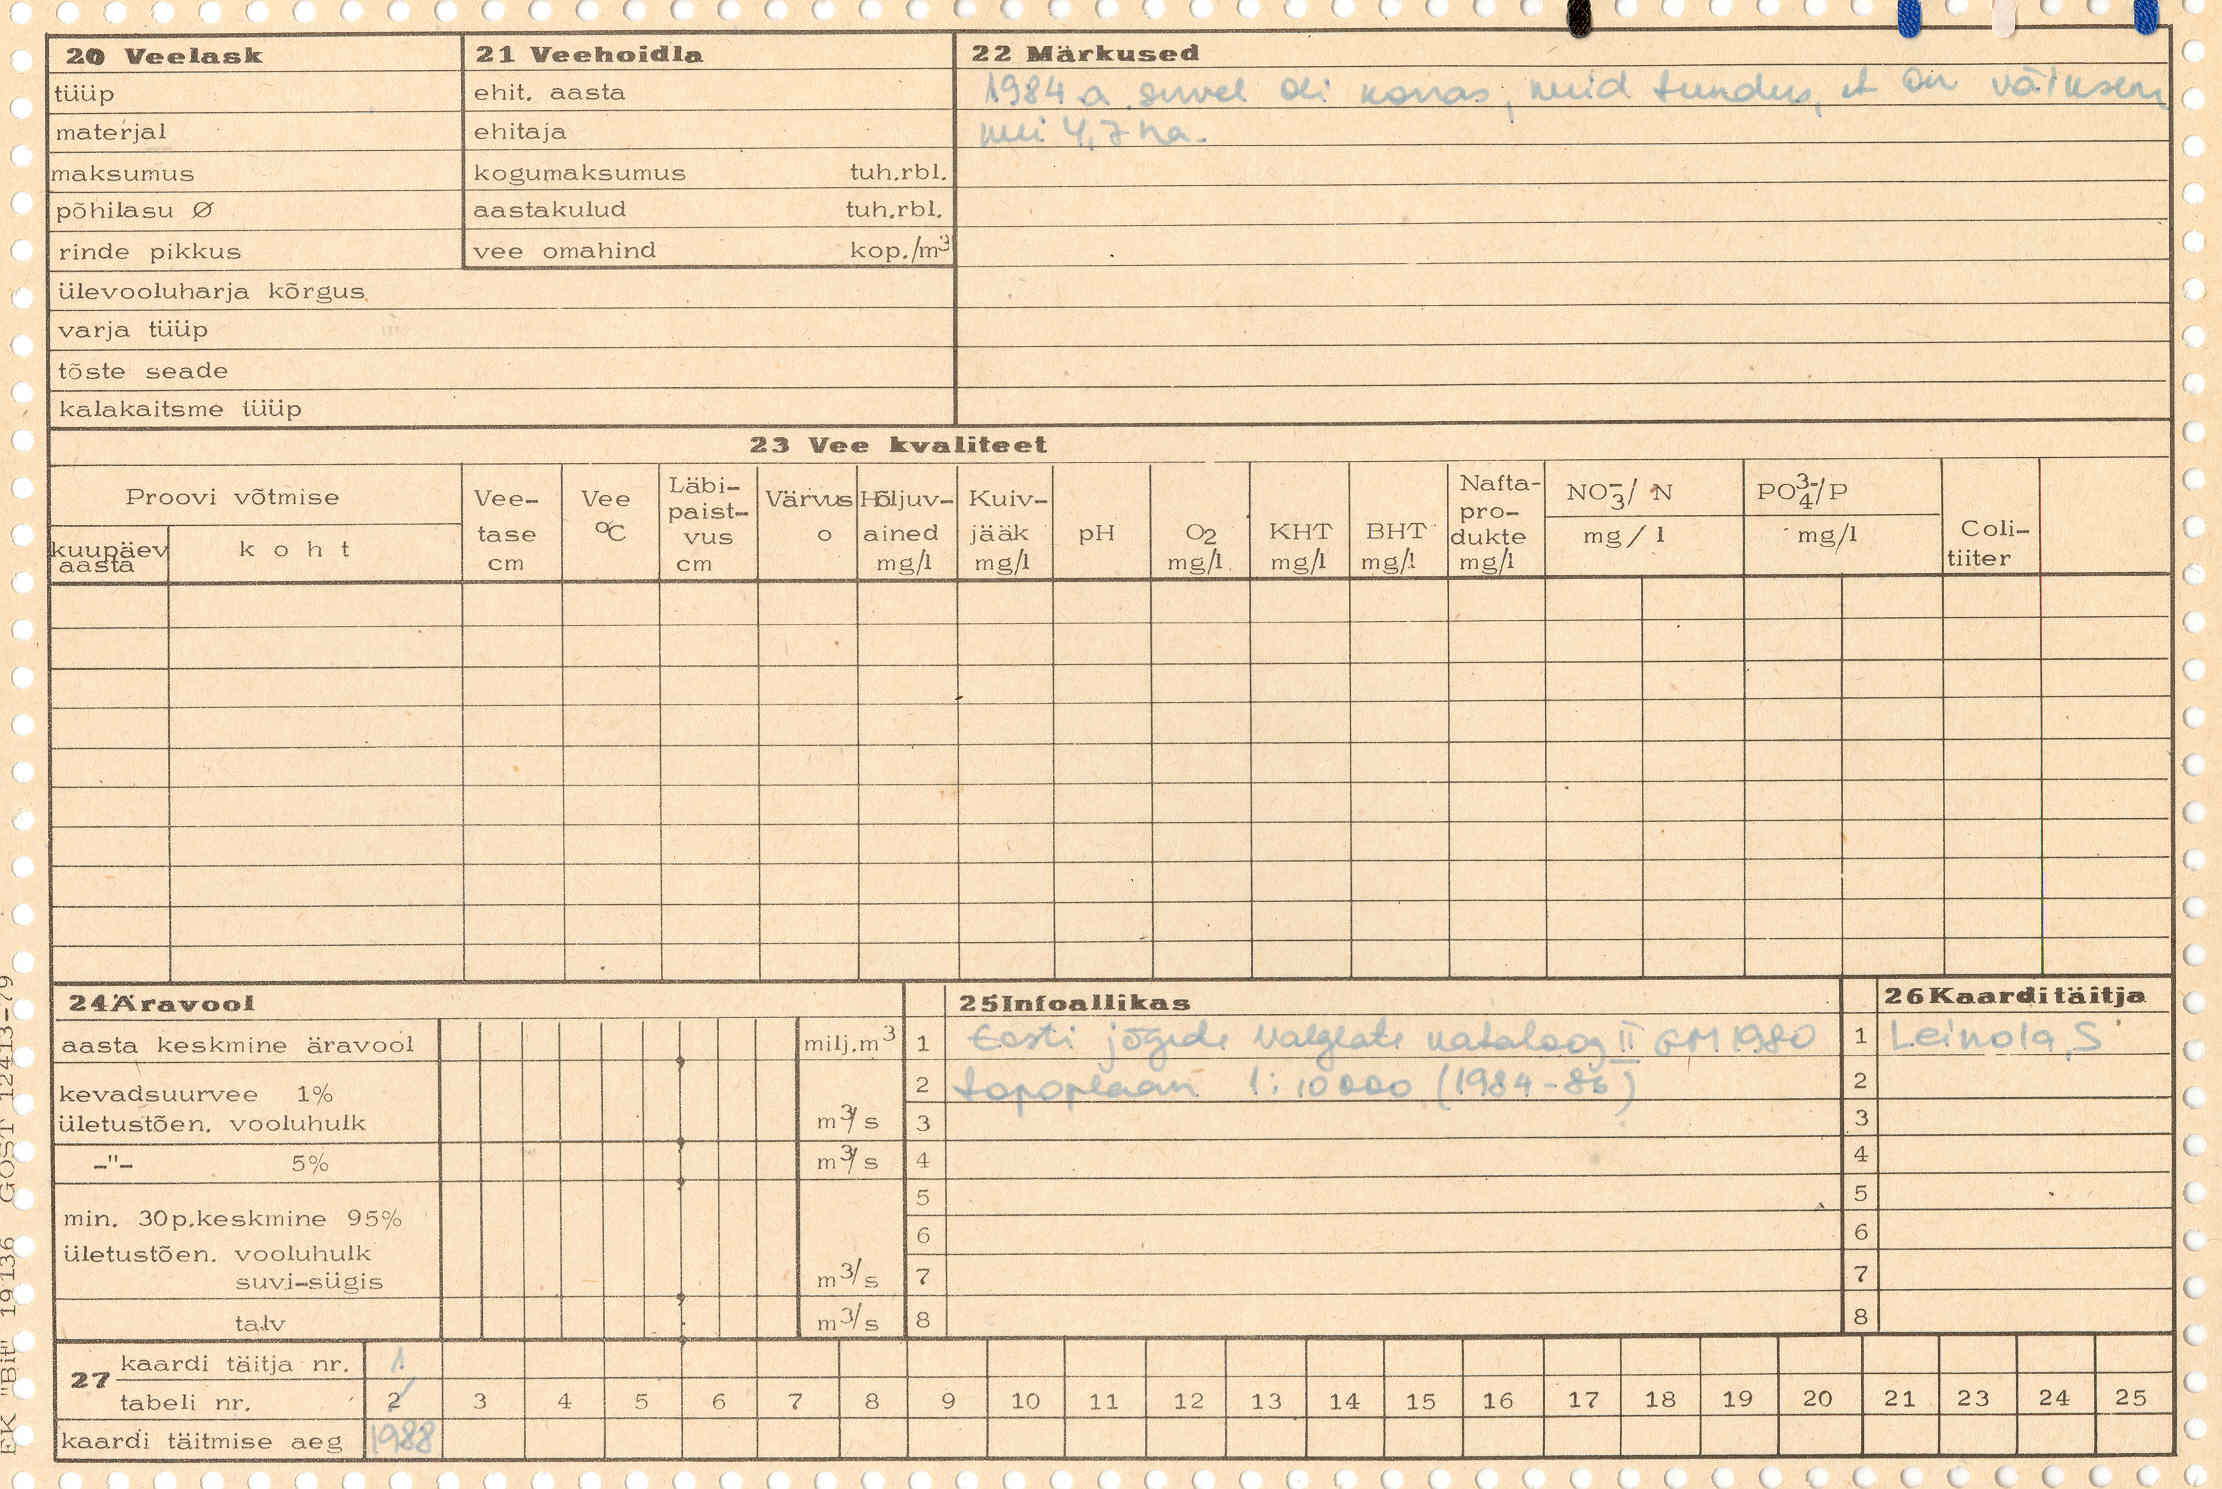 20 Veelask
tüüp
materjal
maksumus
põhilasu Ø
rinde pikkus
ülevooluharja kõrgus
varja tüüp
tõste seade
kalakaitsme tüüp
21 Veehoidla
ehit. aasta
ehitaja
kogumaksumus tuh.rbl.
aastakulud tuh.rbl.
vee omahind kop./m³
22 Märkused
1984 a. suvel oli korras, kuid tundus, et on väiksem
kui 4,7 ha.
23 Vee kvaliteet
Proovi võtmise
kuupäev aasta
koht
Vee-
tase
cm
Vee
°C
Läbi-
paist-
vus
cm
Värvus
o
Hõljuv-
ained
mg/l
Kuiv-
jääk
mg/l
pH
O₂
mg/l
KHT
mg/l
BHT
mg/l
Nafta-
pro-
dukte
mg/l
NO₃⁻/ N
mg/l
PO₄³⁻/P
mg/l
Coli-
tiiter
24 Äravool
aasta keskmine äravool milj.m³
kevadsuurvee 1%
ületustõen. vooluhulk m³/s
-"- 5% m³/s
min. 30p.keskmine 95%
ületustõen. vooluhulk
suvi-sügis m³/s
talv m³/s
25 Infoallikas
1 Eesti jõgede valglate kataloog II EM 1980
2 topoplaan 1:10000 (1984-86)
3
4
5
6
7
8
26 Kaardi täitja
1 Leinola, S
2
3
4
5
6
7
8
27 kaardi täitja nr. 1
tabeli nr. 2 3 4 5 6 7 8 9 10 11 12 13 14 15 16 17 18 19 20 21 23 24 25
kaardi täitmise aeg 1988
EK "Bit" 19136 GOST 12413-79